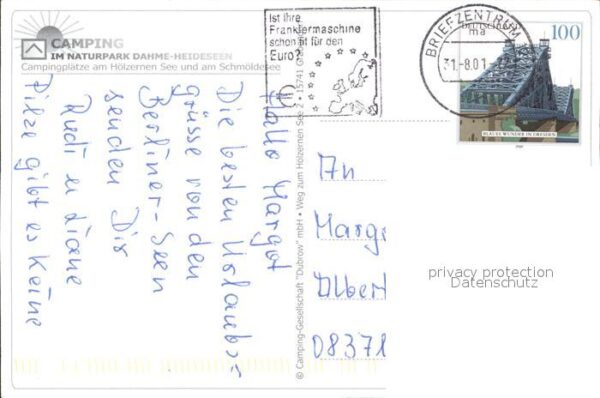 CAMPING
IM NATURPARK DAHME-HEIDESEEN
Campingplätze am Hölzernen See und am Schmöldesee
Ist Ihre
Frankiermaschine
schon fit für den
Euro?
BRIEFZENTRUM
ma
31.-8.01
Deutschland
100
BLAUES WUNDER IN DRESDEN
2000
Hallo Margot
Die besten Urlaubs-
grüsse von den
Berliner-Seen
senden Dir
Rudi u. Liane
Pilze gibt es keine
© Camping-Gesellschaft "Dubrow" mbH • Weg zum Hölzernen See 2 • 15741
An
Marg
Albert
08371
privacy protection
Datenschutz